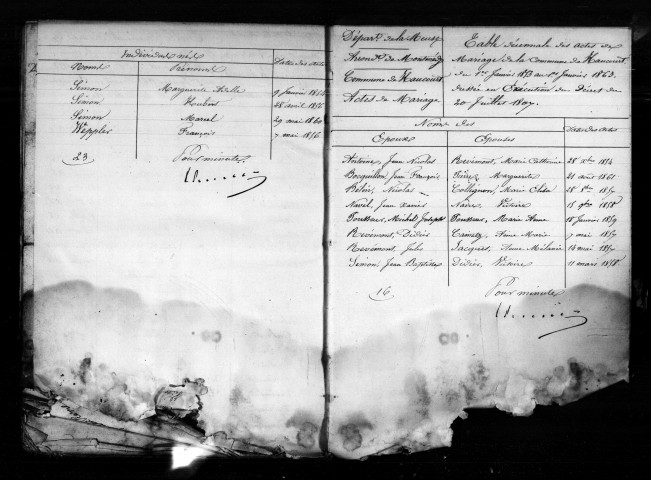 Individus nés
Noms Prénoms Dates des Actes
Simon Marguerite 9 janvier 1854
Simon 28 avril 1856
Simon Marcel 29 mai 1860
Weppler François 7 mai 1856
23 Pour minute
Départ. de la Meuse
Arrond. de Montmédy
Commune de Haucourt
Actes de Mariage
Table décennale des actes de
Mariage de la Commune de Haucourt
du 1er Janvier 1853 au 1er janvier 1863.
dressée en Exécution du Décret du
20 Juillet 1807.
Noms des
Epoux Epouses Dates des Actes
Antoine, Jean Nicolas Revémont, Marie Catherine 28 xbre 1854
Bocquillon, Jean François Marguerite 21 août 1861
Nicolas Collignon, Marie 28
Navel, Jean Xavier Victoire 15 9bre 1858
Toussaux, Michel Joseph Toussaux, Marie Anne 18 janvier 1859
Revémont, Didier Anne Marie 7 mai 1857
Revémont, Jules Jacquet, Anne Mélanie 14 mai 1857
Simon, Jean Baptiste Didier, Victoire 11 mars 1858
16 Pour minute